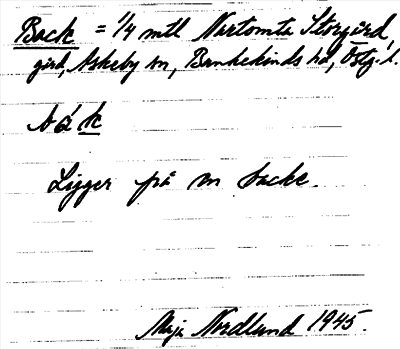 Back = 1/4 mtl Nartomta Storgård,
gård, Askeby sn, Bankekinds hd, Östg. l.
bák
Ligger på en backe.
Maja Nordlund 1945.